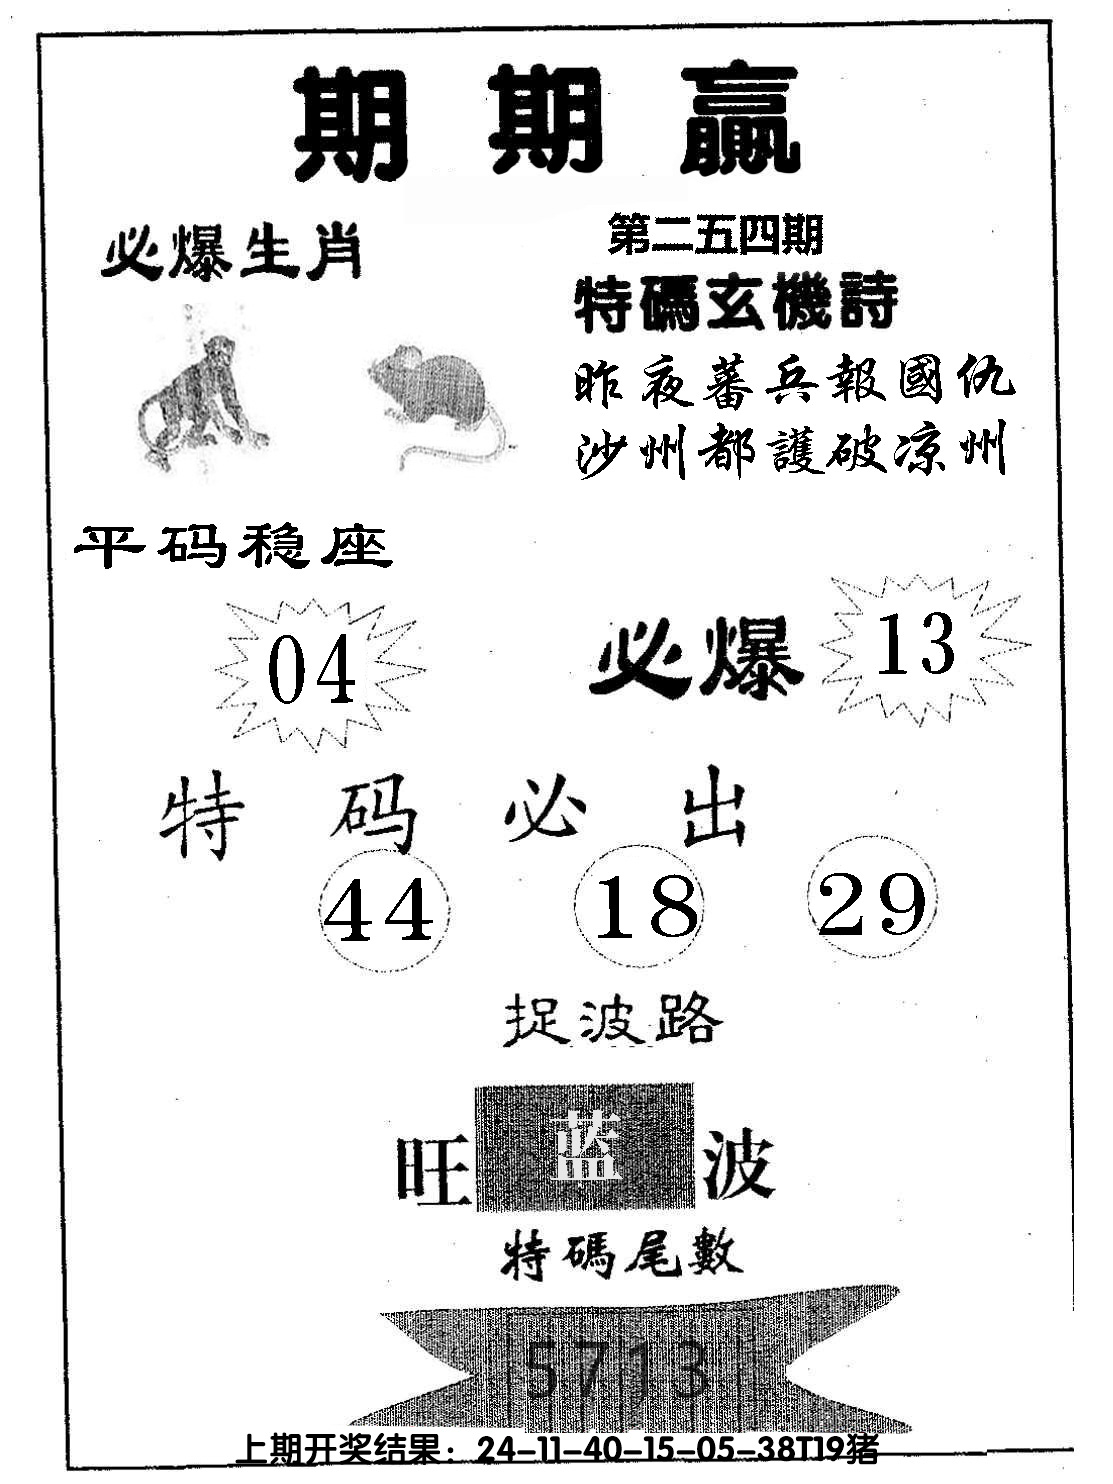 期期赢
必爆生肖
第二五四期
特碼玄機詩
昨夜蕃兵報國仇
沙州都護破凉州
平码稳座
04
必爆 13
特码必出
44 18 29
捉波路
旺 蓝 波
特碼尾數
5713
上期开奖结果：24-11-40-15-05-38T19猪